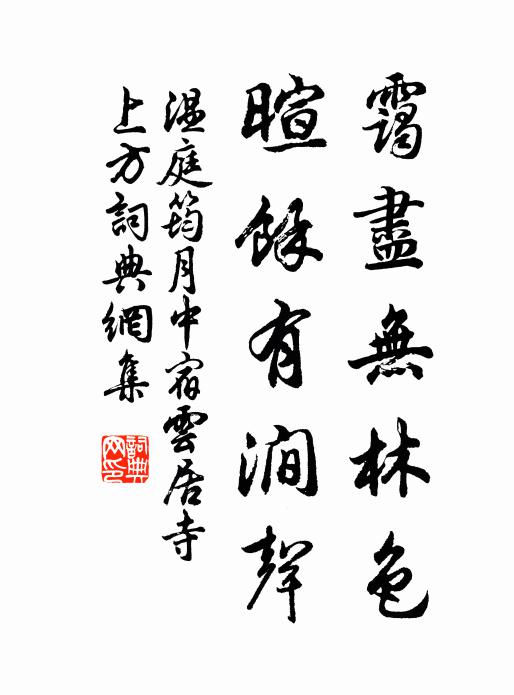 靄盡無林色
暄餘有澗聲
温庭筠月中宿雲居寺
上方詞典網集
詞典網印